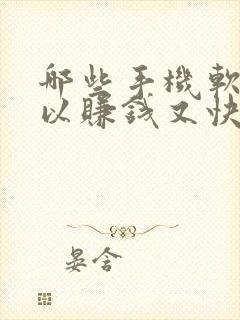 哪些手機軟
以賺錢又快
晏含